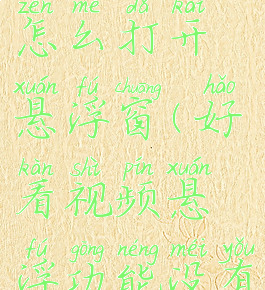 zěn me dǎ kāi
怎么打开
xuán fú chuāng hǎo
悬浮窗(好
kàn shì pín xuán
看视频悬
fú gōng néng méi yǒu
浮功能没有